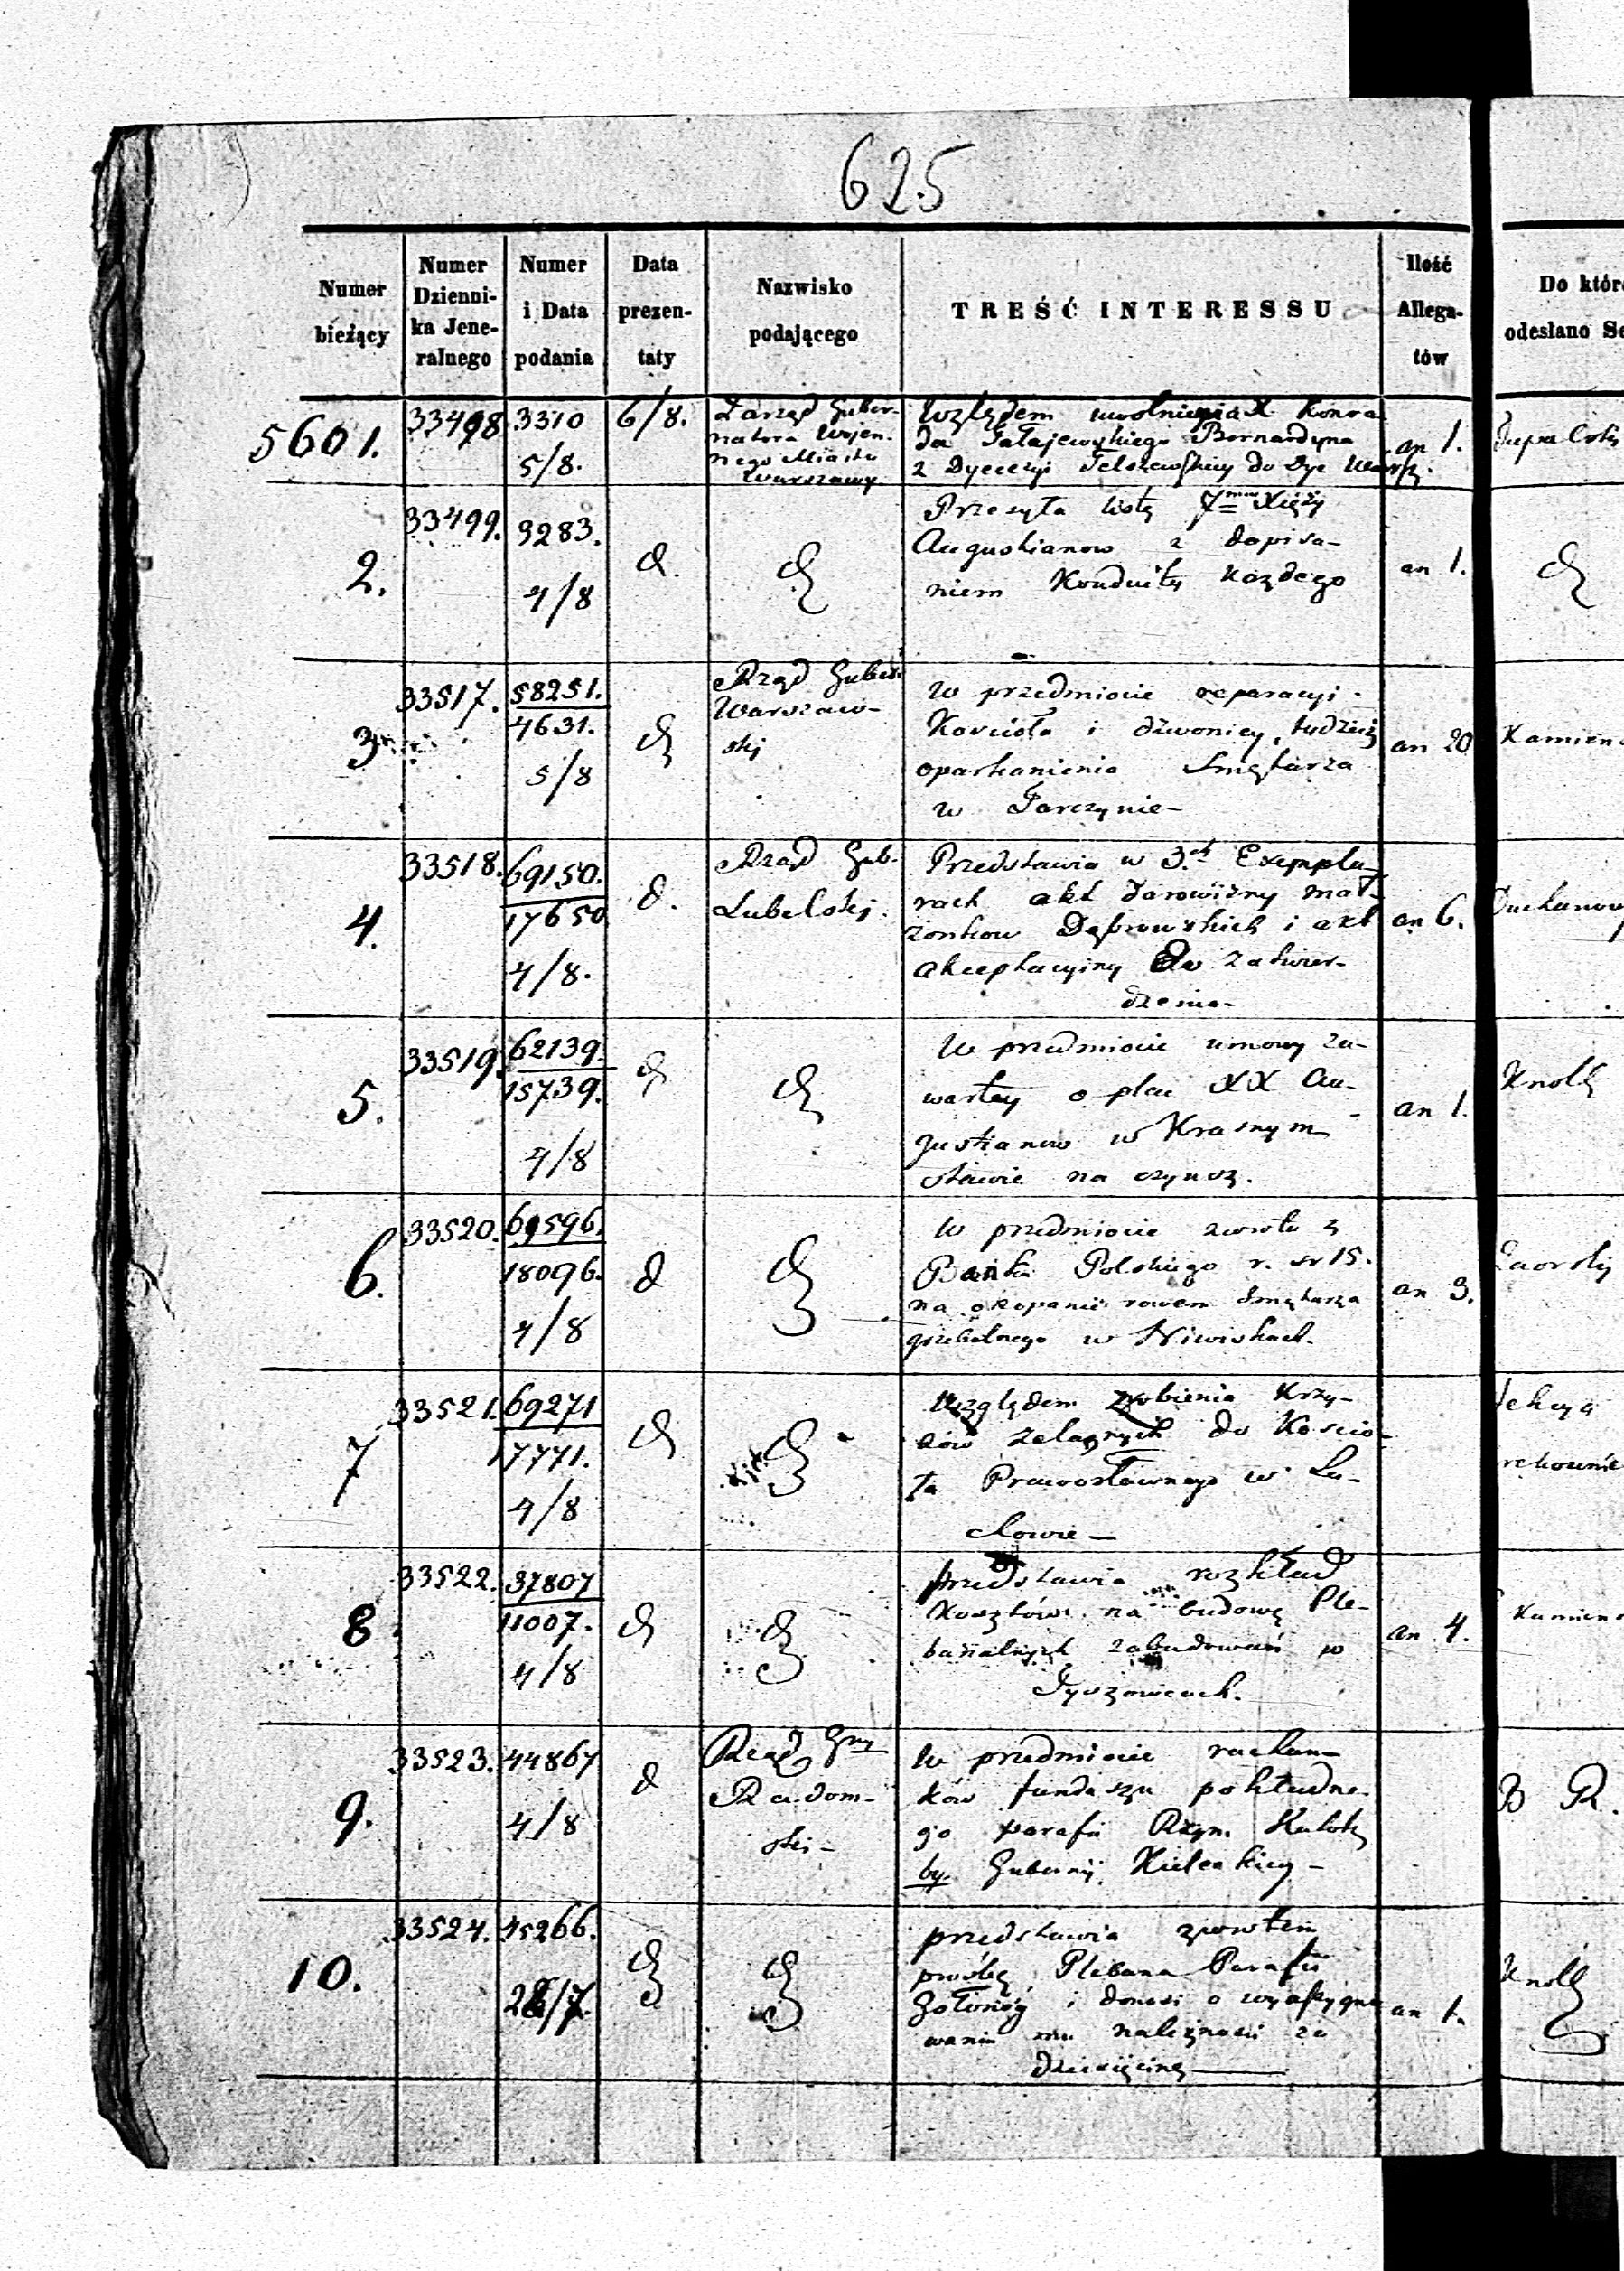 625
Numer bieżący
Numer Dzienni-ka Jene-ralnego
Numer i Data podania
Data prezen-taty
Nazwisko podającego
TREŚĆ INTERESSU
Ilość Allega-tów
Do któr
odesłano Se
5601.
33498
3310
5/8.
6/8.
Zarząd Guber-
natora Wojen-
nego Miasta
Warszawy
Względem uwolnienia X Konra-
da Bernardyna
z Dyecezyi Telszewskiey do Dye Warsz.
an 1.
2.
33499.
3283.
4/8
d.
Przesyła listę 7miu Xięży
Augustianow z dopisa-
niem Konduity każdego
an 1.
3
33517.
58251.
4631.
5/8
Rząd Guber
Warszaw-
skij
W przedmiocie reparacyi
Kościoła i dzwonicy, tudzież
oparkanienia Smętarza
w Tarczynie-
an 20
Kamien
4.
33518.
69150.
17650
4/8.
d.
Rząd Gub.
Lubelskij.
Przedstawia w 3ch Exempla-
rach akt darowizny mał-
żonkow Dąbrowskich i akt
akceptacyjny do zatwier-
dzenia-
an 6.
5.
33519.
62139.
15739.
4/8
W przedmiocie umowy za-
wartey o plac XX Au-
gustianow w Krasnym
stawie na czynsz.
an 1.
Knoll
6.
33520.
69596.
18096.
4/8
d
W przedmiocie zwrotu z
Banku Polskiego r. sr 15.
na okopanie rowem Smętarza
grzebalnego w Niwiskach.
an 3.
7
33521.
69271
17771.
4/8
Względem zrobienia Krzy-
żów żelaznych do Kościo-
ła Prawosławnego w
8
33522.
37807
11007.
4/8
przedstawia rozkład
Kosztów na budowę Ple-
banalnych zabudowań w
Tyszowcach.
an 4.
Kamien
9.
33523.
44867
4/8
d
Rząd Gny
Radom-
ski-
W przedmiocie rachun-
ków funduszu pokładne-
go parafii Rzym. Katol.
by. Gubernij Kieleckiey-
B R.
10.
33524.
45266.
28/7.
przedstawia zpowtem
prośbę Plebana Parafii
Gołonóg i donosi o wyassygno-
waniu mu należności za
dziesięcinę
an 1.
Knoll